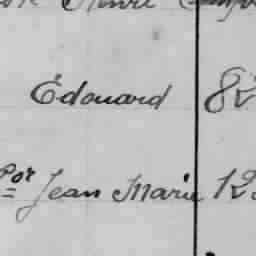 Henri
Édouard 82
Por Jean Marie 12